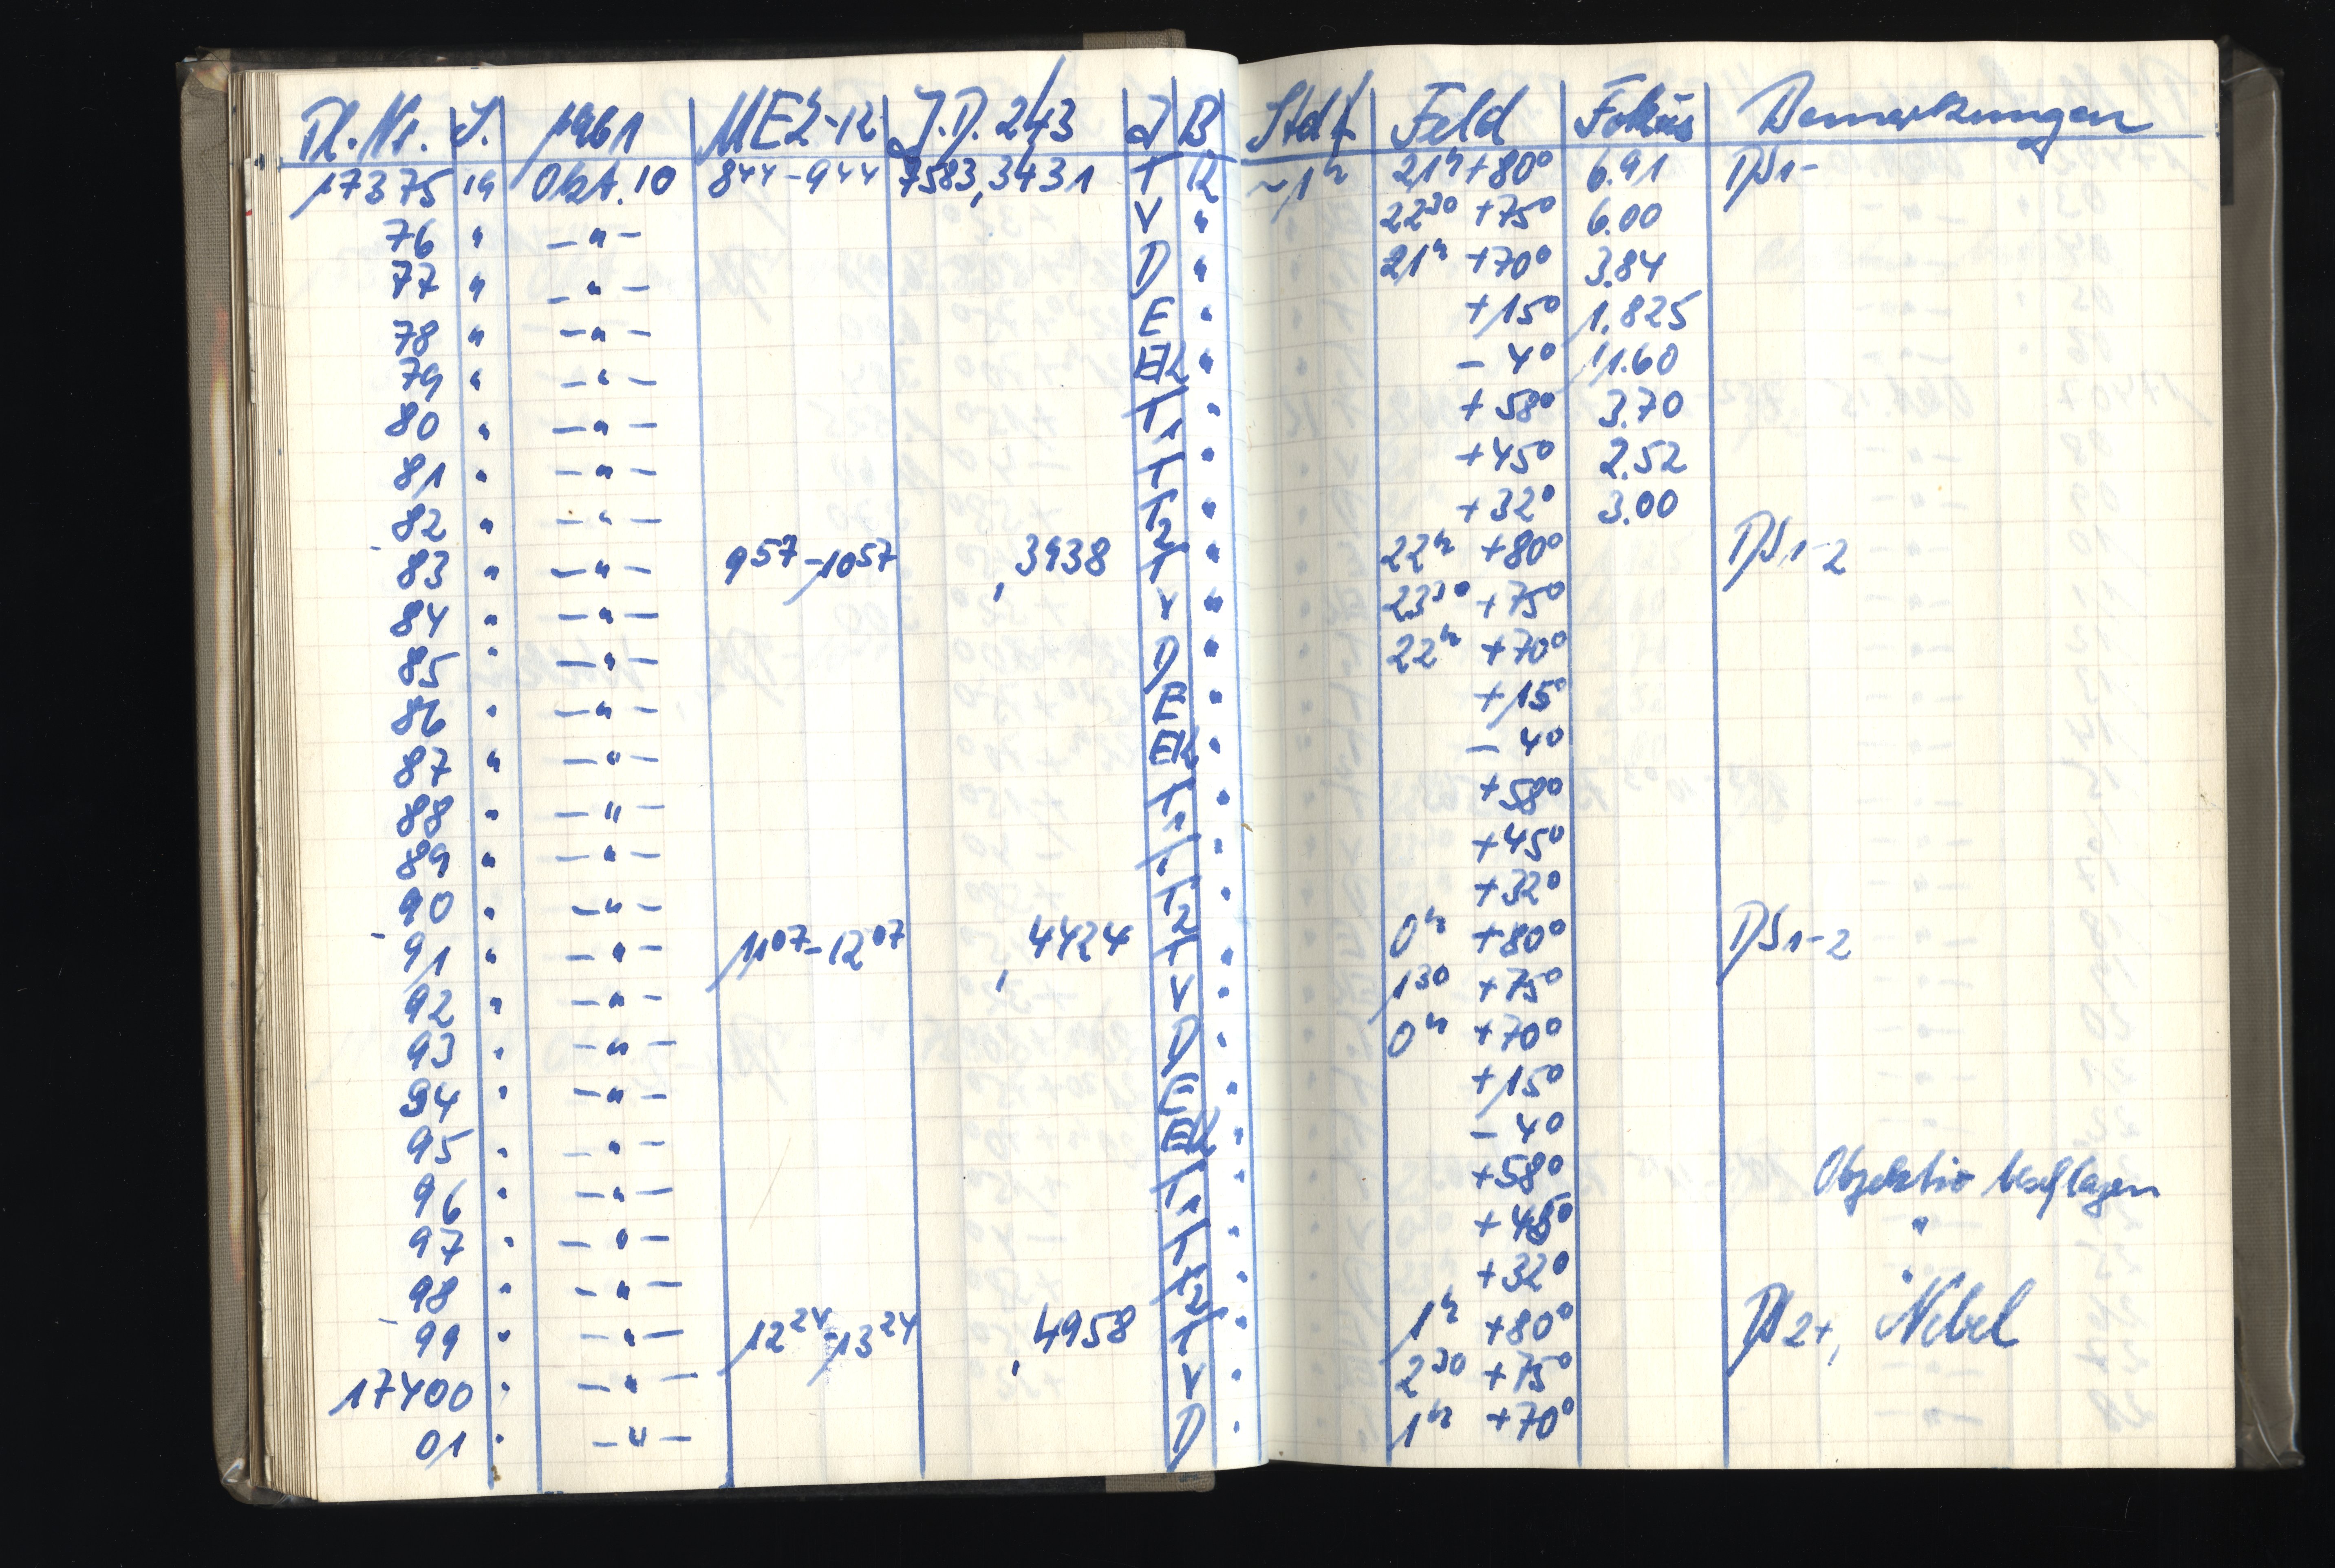 Pl. Nr. S. 1961 MEZ-12h J.D. 243 J B. Stdf Feld Fokus Bemerkungen
17375 19 Okt. 10 8 44 - 9 44 7583,3431 T R ~1h 21h +80° 6.91 DS1-
76 " - " - V " 22 30 +75° 6.00
77 " - " - D " 21h +70° 3.84
78 " - " - E " +15° 1.825
79 " - " - EK " - 4° 11.60
80 " - " - T1 " +58° 3.70
81 " - " - T " +45° 2.52
82 " - " - T2 " +32° 3.00
83 " - " - 9 57 - 10 57 ,3938 T " 22h +80° DS1-2
84 " - " - V " 23 30 +75°
85 " - " - D " 22h +70°
86 " - " - E " +15°
87 " - " - EK " - 4°
88 " - " - T1 " +58°
89 " - " - T " +45°
90 " - " - T2 " +32°
91 " - " - 11 07 - 12 07 ,4424 T " 0h +80° DS1-2
92 " - " - V " 1 30 +75°
93 " - " - D " 0h +70°
94 " - " - E " +15°
95 " - " - EK " - 4°
96 " - " - T1 " +58° Objektiv beschlagen
97 " - " - T " +45° "
98 " - " - T2 " +32° "
99 " - " - 12 24 - 13 24 ,4958 T " 1h +80° DS2+, Nebel
17400 " - " - V " 2 30 +75°
01 " - " - D " 1h +70°